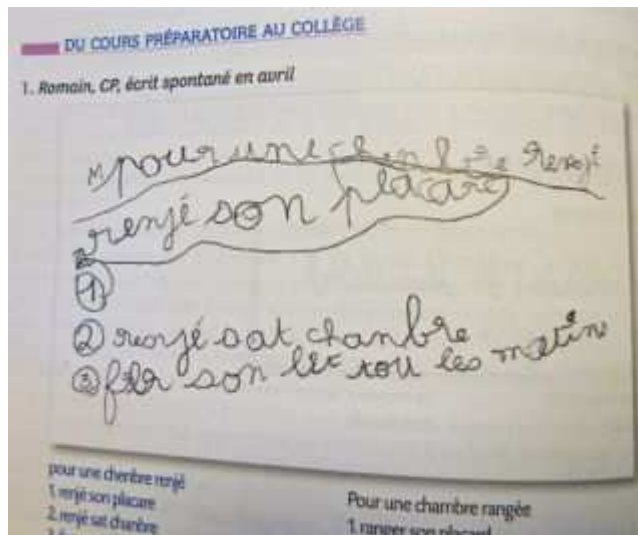 DU COURS PRÉPARATOIRE AU COLLÈGE
1. Romain, CP, écrit spontané en avril
pour une
renjé son placare
1
2 renjé sat chanbre
3 son lit tou les matin
pour une chenbre renjé
1. renjé son placare
2. renjé sat chanbre
Pour une chambre rangée
1. ranger son placard